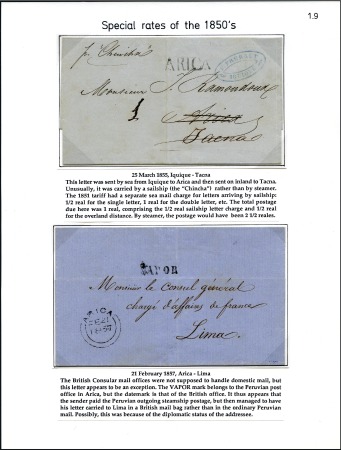 Special rates of the 1850's
1.9
pr "Chincha"
ARICA
Monsieur J. Ramondoux
1.
Arica
Tacna
25 March 1855, Iquique - Tacna
This letter was sent by sea from Iquique to Arica and then sent on inland to Tacna.
Unusually, it was carried by a sailship (the "Chincha") rather than by steamer.
The 1851 tariff had a separate sea mail charge for letters arriving by sailship:
1/2 real for the single letter, 1 real for the double letter, etc. The total postage
due here was 1 real, comprising the 1/2 real sailship letter charge and 1/2 real
for the overland distance. By steamer, the postage would have been 2 1/2 reales.
VAPOR
Monsieur le Consul général
chargé d'affaires de france
Lima.
ARICA
FE 21
1857
21 February 1857, Arica - Lima
The British Consular mail offices were not supposed to handle domestic mail, but
this letter appears to be an exception. The VAPOR mark belongs to the Peruvian post
office in Arica, but the datemark is that of the British office. It thus appears that
the sender paid the Peruvian outgoing steamship postage, but then managed to have
his letter carried to Lima in a British mail bag rather than in the ordinary Peruvian
mail. Possibly, this was because of the diplomatic status of the addressee.